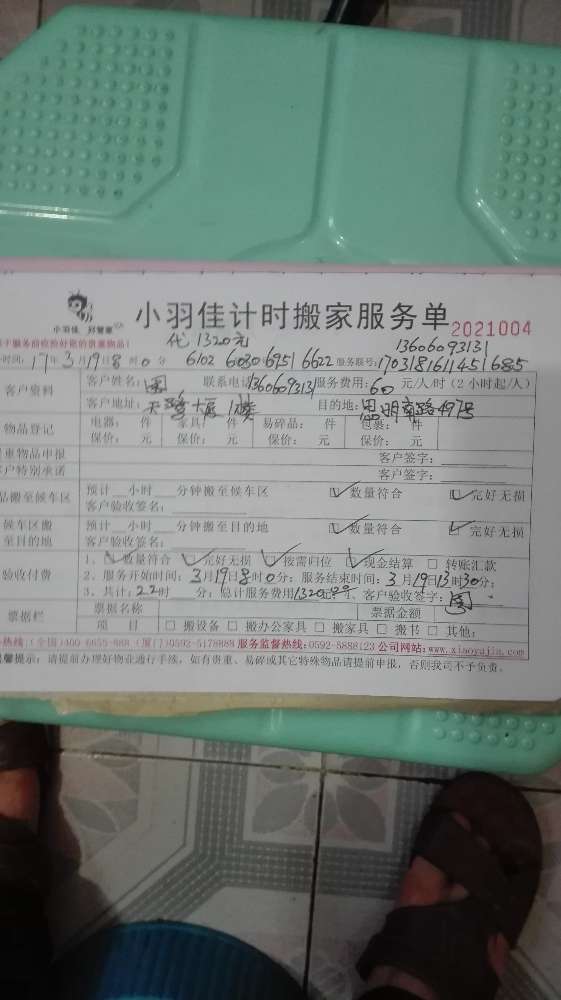 小羽佳 好管家
小羽佳计时搬家服务单 2021004
代 1320元
于服务前收捡好您的贵重物品!
13606093131
时间:17年3月19日8时0分 6102 6030 6951 6622 服务联号:1703181611451685
客户资料 客户姓名: 联系电话13606093131 服务费用:60 元/人/时(2小时起/人)
客户地址: 1楼 目的地:思明南路497号
物品登记 电器: 件 家具: 件 易碎品: 件 包裹: 件
保价: 元 保价: 元 保价: 元 保价: 元
重物品申报 客户签字:
户特别承诺 客户签字:
品搬至候车区 预计 小时 分钟搬至候车区 数量符合 完好无损
客户验收签名:
候车区搬 预计 小时 分钟搬至目的地 数量符合 完好无损
至目的地 客户验收签名:
验收付费 1、数量符合 完好无损 按需归位 现金结算 转账汇款
2、服务开始时间:3月19日8时0分; 服务结束时间:3月19日13时30分;
3、共计:22时 分; 总计服务费用1320元 客户验收签字:
票据栏 票据名称 票据金额
项 目 搬设备 搬办公家具 搬家具 搬书 其他:
热线:(全国)400-6655-888 (厦门)0592-5178888 服务监督热线:0592-5888123 公司网站:www.xiaoyujia.com
温馨提示:请提前办理好物业通行手续,如有贵重、易碎或其它特殊物品请提前申报,否则我司不予负责。